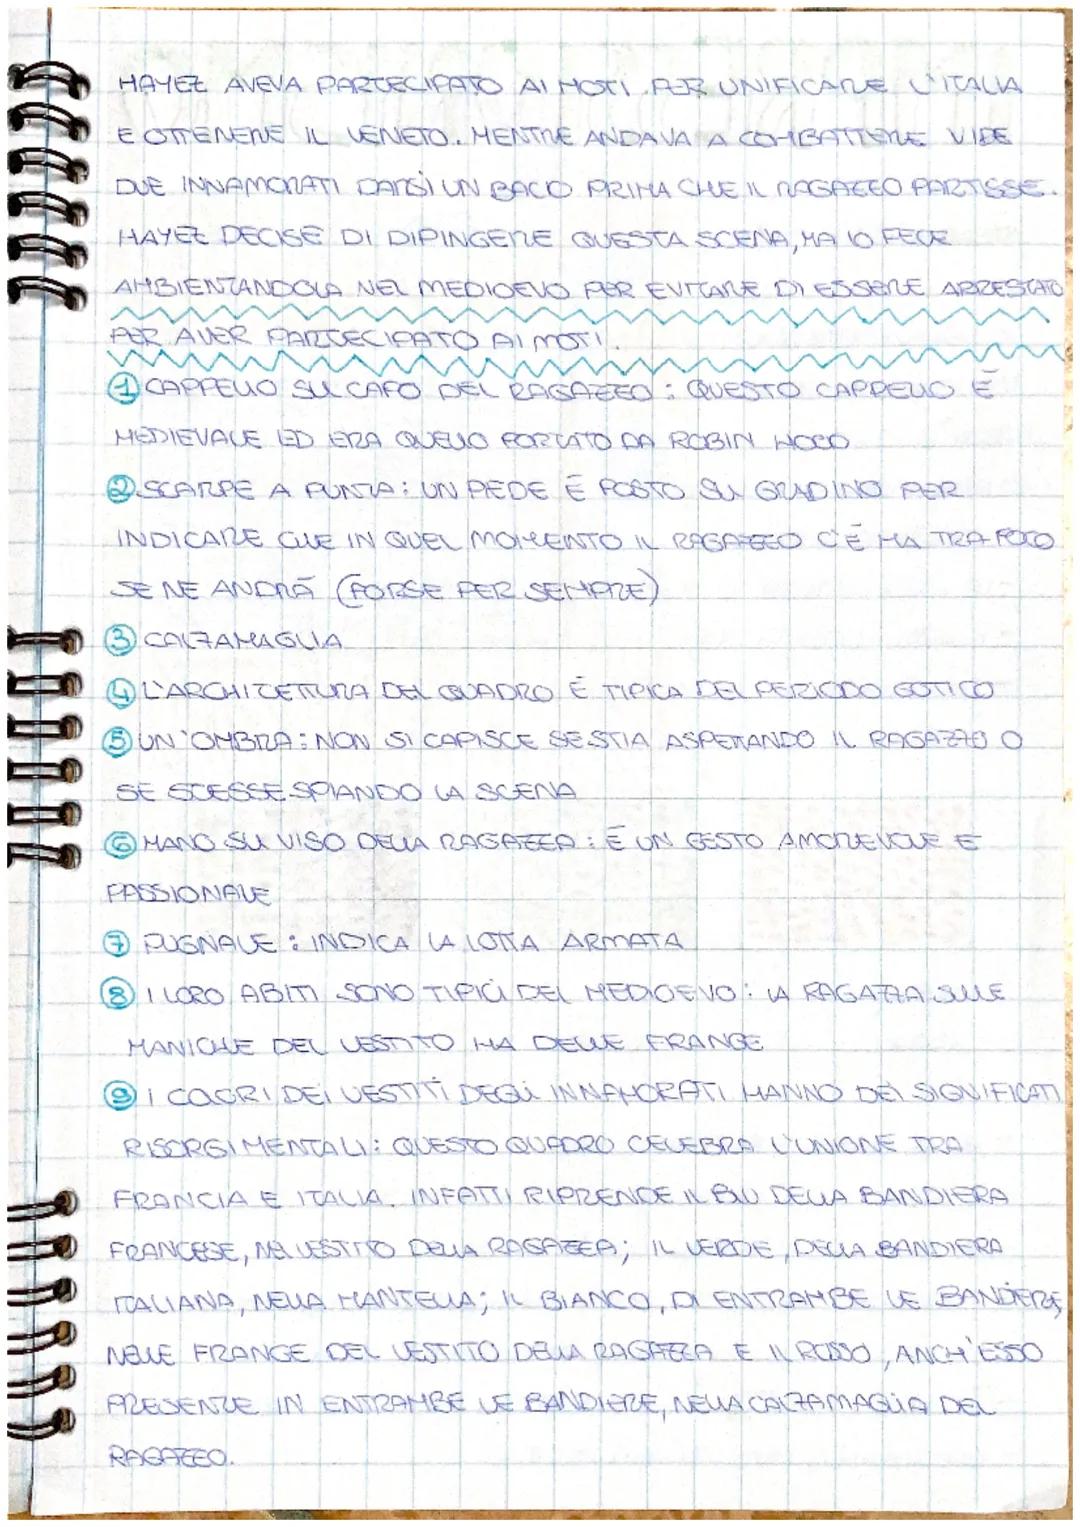 HAYEZ AVEVA PARTECIPATO AI MOTI PER UNIFICARE L'ITALIA
E OTTENERE IL VENETO. MENTRE ANDAVA A COMBATTERE VIDE
DUE INNAMORATI DARSI UN BACIO PRIMA CHE IL RAGAZZO PARTISSE.
HAYEZ DECISE DI DIPINGERE QUESTA SCENA, MA LO FECE
AMBIENTANDOLA NEL MEDIOEVO PER EVITARE DI ESSERE ARRESTATO
PER AVER PARTECIPATO AI MOTI.
① CAPPELLO SUL CAPO DEL RAGAZZO: QUESTO CAPPELLO È
MEDIEVALE ED ERA QUELLO PORTATO DA ROBIN HOOD
② SCARPE A PUNTA: UN PIEDE È POSTO SUL GRADINO PER
INDICARE CHE IN QUEL MOMENTO IL RAGAZZO C'È MA TRA POCO
SE NE ANDRÀ (FORSE PER SEMPRE)
③ CALZAMAGLIA
④ L'ARCHITETTURA DEL QUADRO È TIPICA DEL PERIODO GOTICO
⑤ UN'OMBRA: NON SI CAPISCE SE STIA ASPETTANDO IL RAGAZZO O
SE STESSE SPIANDO LA SCENA
⑥ MANO SUL VISO DELLA RAGAZZA: È UN GESTO AMOREVOLE E
PASSIONALE
⑦ PUGNALE: INDICA LA LOTTA ARMATA
⑧ I LORO ABITI SONO TIPICI DEL MEDIOEVO: LA RAGAZZA SULLE
MANICHE DEL VESTITO HA DELLE FRANGE
⑨ I COLORI DEI VESTITI DEGLI INNAMORATI HANNO DEI SIGNIFICATI
RISORGIMENTALI: QUESTO QUADRO CELEBRA L'UNIONE TRA
FRANCIA E ITALIA. INFATTI RIPRENDE IL BLU DELLA BANDIERA
FRANCESE, NEL VESTITO DELLA RAGAZZA; IL VERDE, DELLA BANDIERA
ITALIANA, NELLA MANTELLA; IL BIANCO, DI ENTRAMBE LE BANDIERE,
NELLE FRANGE DEL VESTITO DELLA RAGAZZA E IL ROSSO, ANCH'ESSO
PRESENTE IN ENTRAMBE LE BANDIERE, NELLA CALZAMAGLIA DEL
RAGAZZO.